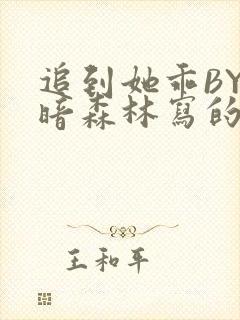 追到她乖BY
暗森林寫的
王和平